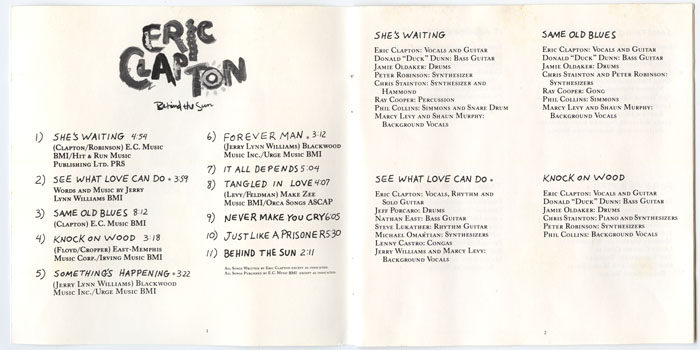 ERIC
CLAPTON
Behind the Sun
1) SHE'S WAITING 4:54
(Clapton/Robinson) E.C. Music
BMI/Hit & Run Music
Publishing Ltd. PRS
2) SEE WHAT LOVE CAN DO • 3:59
Words and Music by Jerry
Lynn Williams BMI
3) SAME OLD BLUES 8:12
(Clapton) E.C. Music BMI
4) KNOCK ON WOOD 3:18
(Floyd/Cropper) East-Memphis
Music Corp./Irving Music BMI
5) SOMETHING'S HAPPENING • 3:22
(Jerry Lynn Williams) Blackwood
Music Inc./Urge Music BMI
6) FOREVER MAN • 3:12
(Jerry Lynn Williams) Blackwood
Music Inc./Urge Music BMI
7) IT ALL DEPENDS 5:04
8) TANGLED IN LOVE 4:07
(Levy/Feldman) Make Zee
Music BMI/Orca Songs ASCAP
9) NEVER MAKE YOU CRY 6:05
10) JUST LIKE A PRISONER 5:30
11) BEHIND THE SUN 2:11
All Songs Written by Eric Clapton except as indicated
All Songs Published by E.C. Music BMI except as indicated
1
SHE'S WAITING
Eric Clapton: Vocals and Guitar
Donald "Duck" Dunn: Bass Guitar
Jamie Oldaker: Drums
Peter Robinson: Synthesizer
Chris Stainton: Synthesizer and
Hammond
Ray Cooper: Percussion
Phil Collins: Simmons and Snare Drum
Marcy Levy and Shaun Murphy:
Background Vocals
SEE WHAT LOVE CAN DO •
Eric Clapton: Vocals, Rhythm and
Solo Guitar
Jeff Porcaro: Drums
Nathan East: Bass Guitar
Steve Lukather: Rhythm Guitar
Michael Omartian: Synthesizers
Lenny Castro: Congas
Jerry Williams and Marcy Levy:
Background Vocals
SAME OLD BLUES
Eric Clapton: Vocals and Guitar
Donald "Duck" Dunn: Bass Guitar
Jamie Oldaker: Drums
Chris Stainton and Peter Robinson:
Synthesizers
Ray Cooper: Gong
Phil Collins: Simmons
Marcy Levy and Shaun Murphy:
Background Vocals
KNOCK ON WOOD
Eric Clapton: Vocals and Guitar
Donald "Duck" Dunn: Bass Guitar
Jamie Oldaker: Drums
Chris Stainton: Piano and Synthesizers
Peter Robinson: Synthesizers
Phil Collins: Background Vocals
2